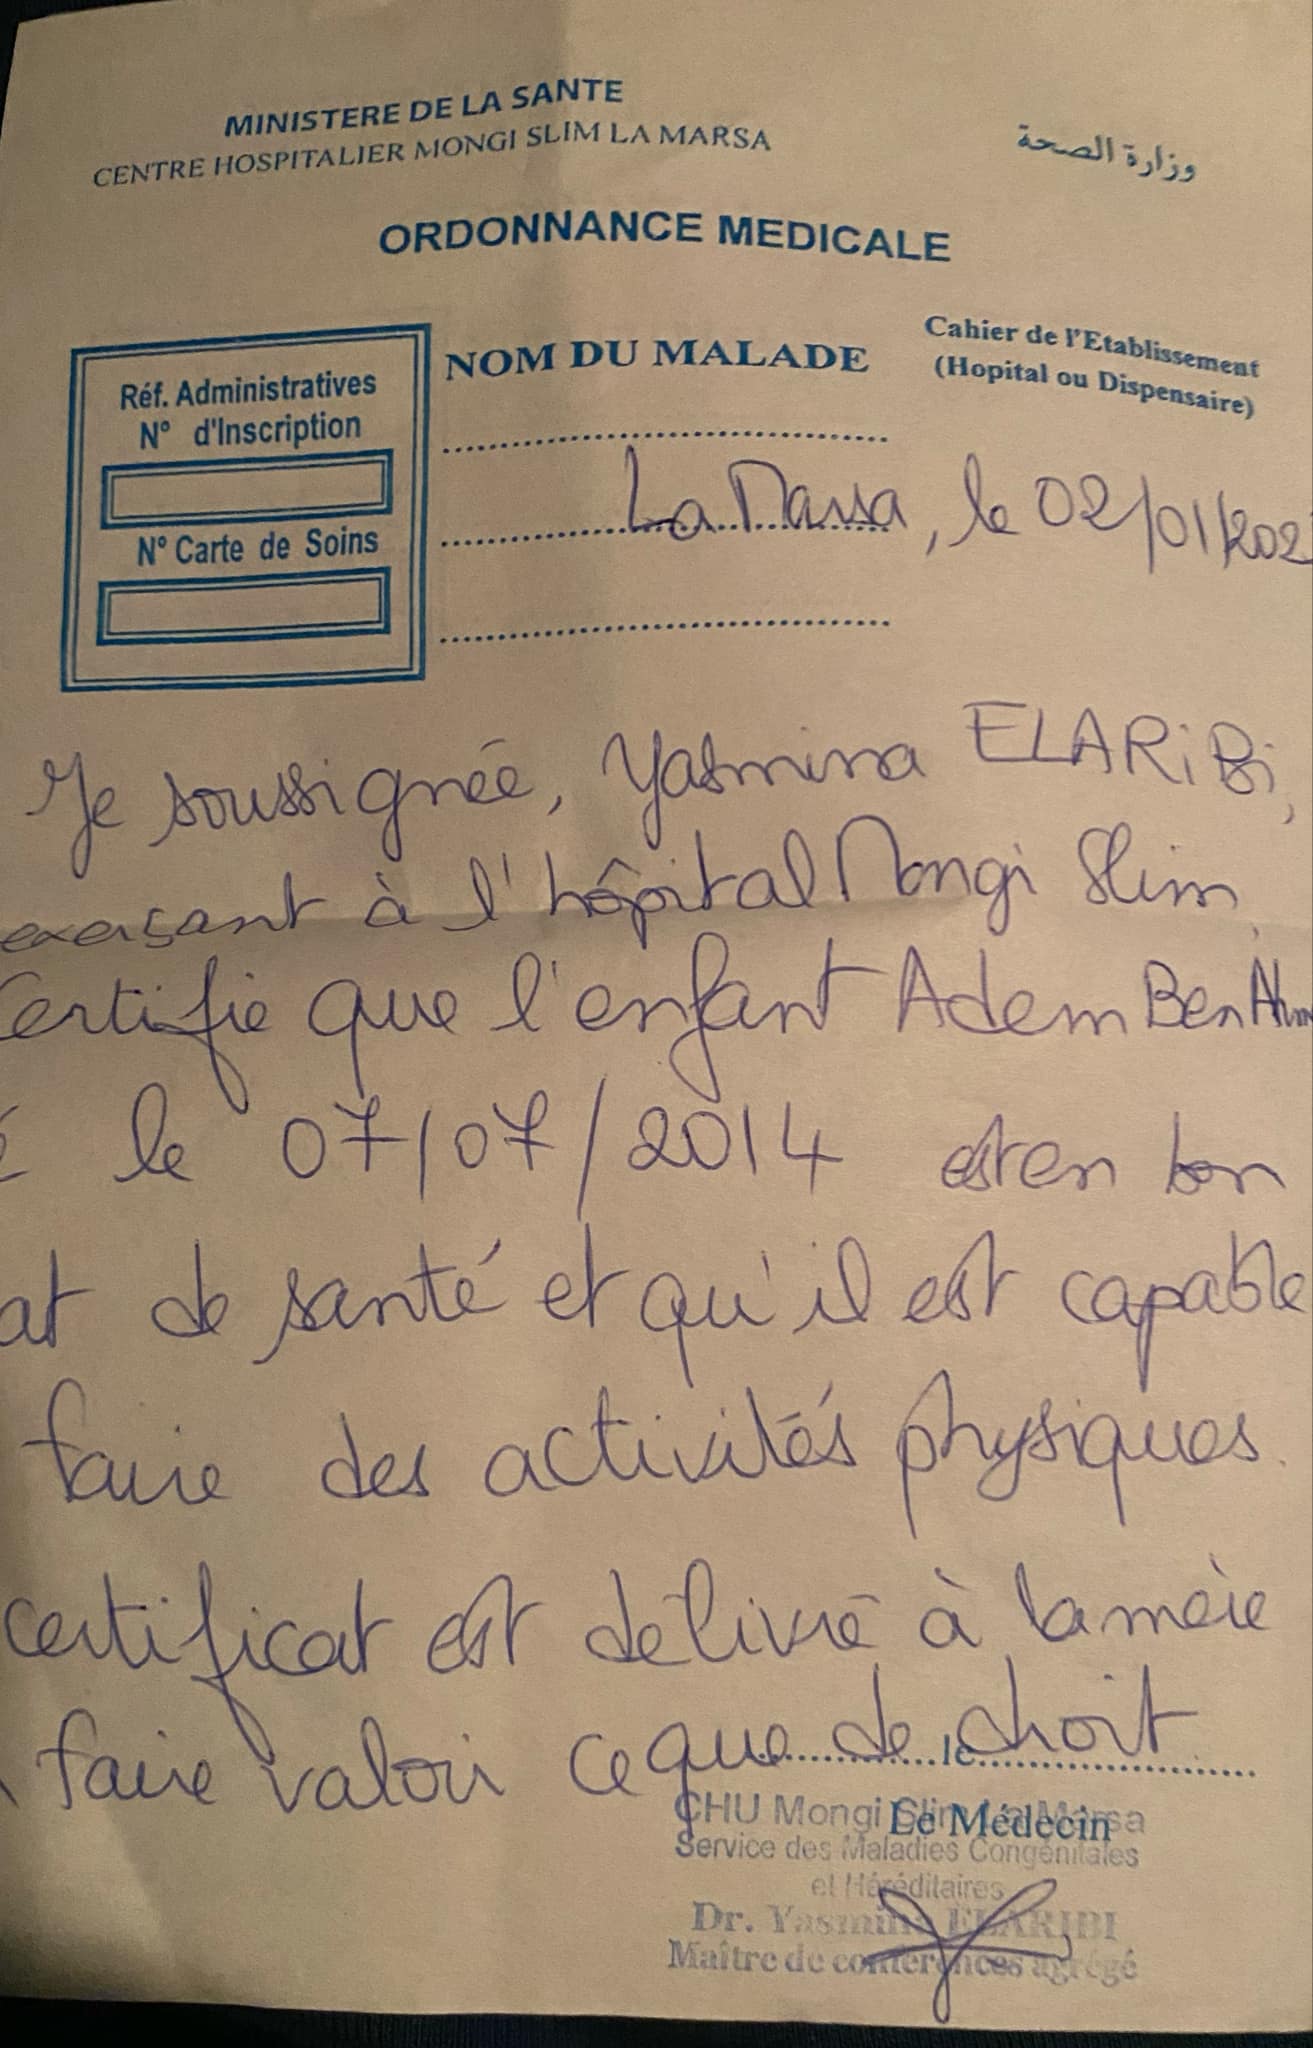 MINISTERE DE LA SANTE
CENTRE HOSPITALIER MONGI SLIM LA MARSA
وزارة الصحة
ORDONNANCE MEDICALE
Réf. Administratives
N° d'Inscription
N° Carte de Soins
NOM DU MALADE
Cahier de l'Etablissement
(Hopital ou Dispensaire)
La Marsa, le 02/01/202
Je soussignée, Yasmina ELARiBi,
exerçant à l'hôpital Mongi Slim,
Certifie que l'enfant Adem Ben
le 07/07/2014 est en bon
at de santé et qu'il est capable
faire des activités physiques.
certificat est délivré à la mère
faire valoir ce que de droit
le
Le Médecin
CHU Mongi Slim La Marsa
Service des Maladies Congénitales
et Héréditaires
Dr. Yasmina ELARIBI
Maître de conférences agrégé